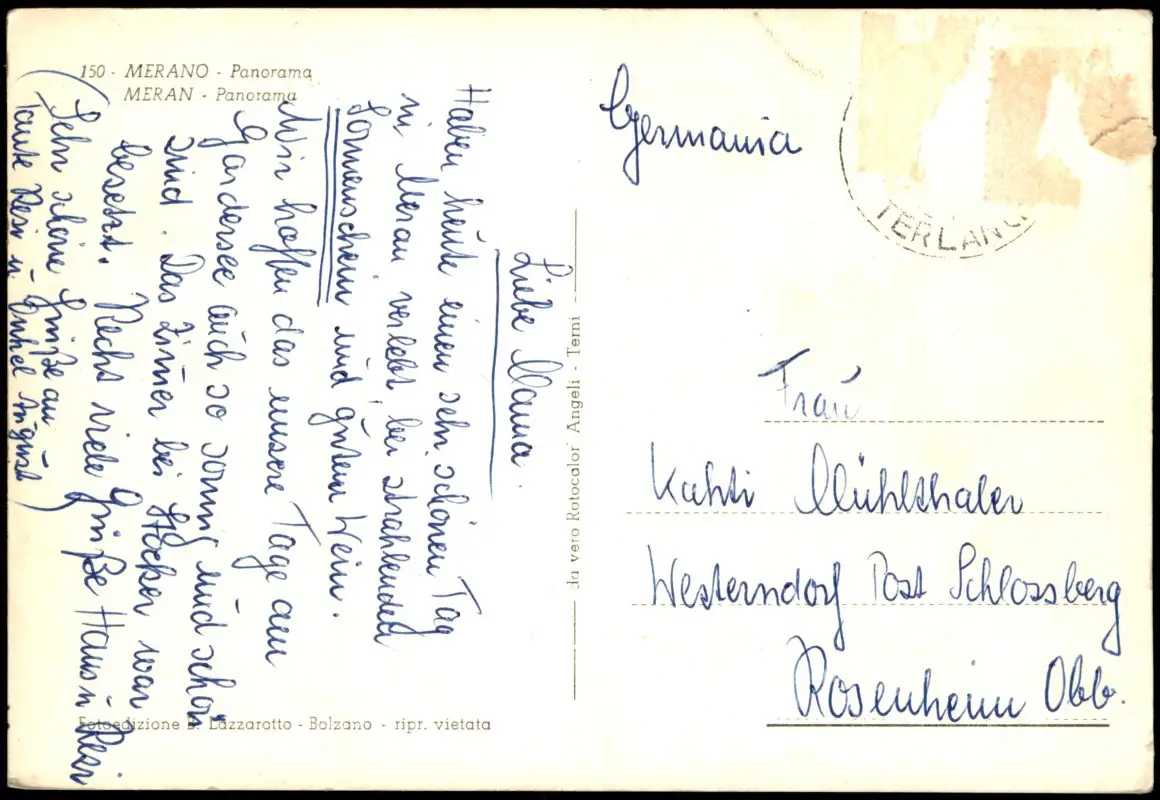 150 - MERANO - Panorama
MERAN - Panorama
Liebe Mama.
Haben heute einen sehr schönen Tag
in Meran verlebt, bei strahlenden
Sonnenschein und gutem Wein.
Wir hoffen das unsere Tage am
Gardersee auch so sonnig und schön
sind. Das Zimer bei Höcker war
besetzt. Rechs viele Grüße Hans u Resi
(Sehr schöne Grüße an
Tante Resi u Onkel August)
da vero Rotocalor' Angeli - Terni
Fotoedizione B. Lazzarotto - Bolzano - ripr. vietata
Germania
TERLANO
Frau
Kathi Mühlthaler
Westerndorf Post Schlossberg
Rosenheim Obb.